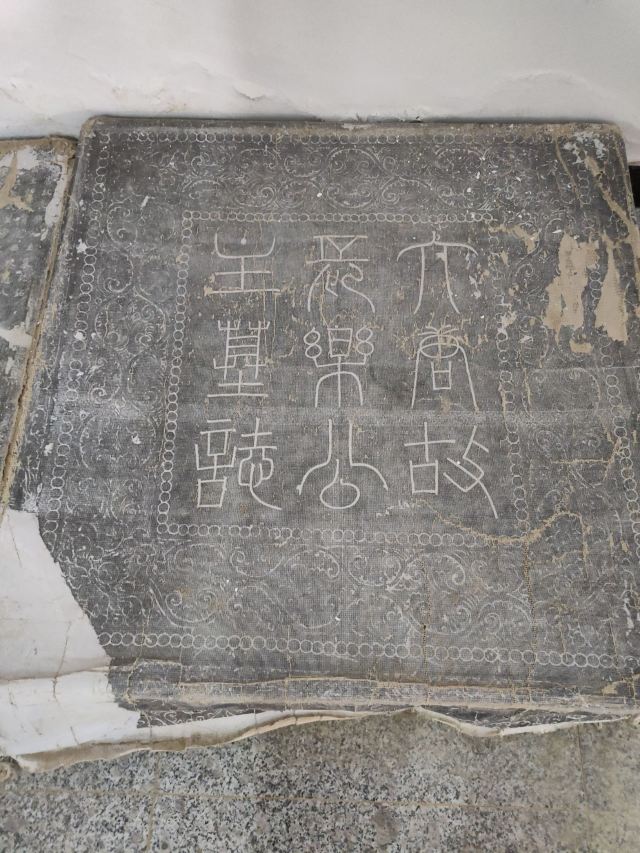 大唐故
長樂公
主墓誌